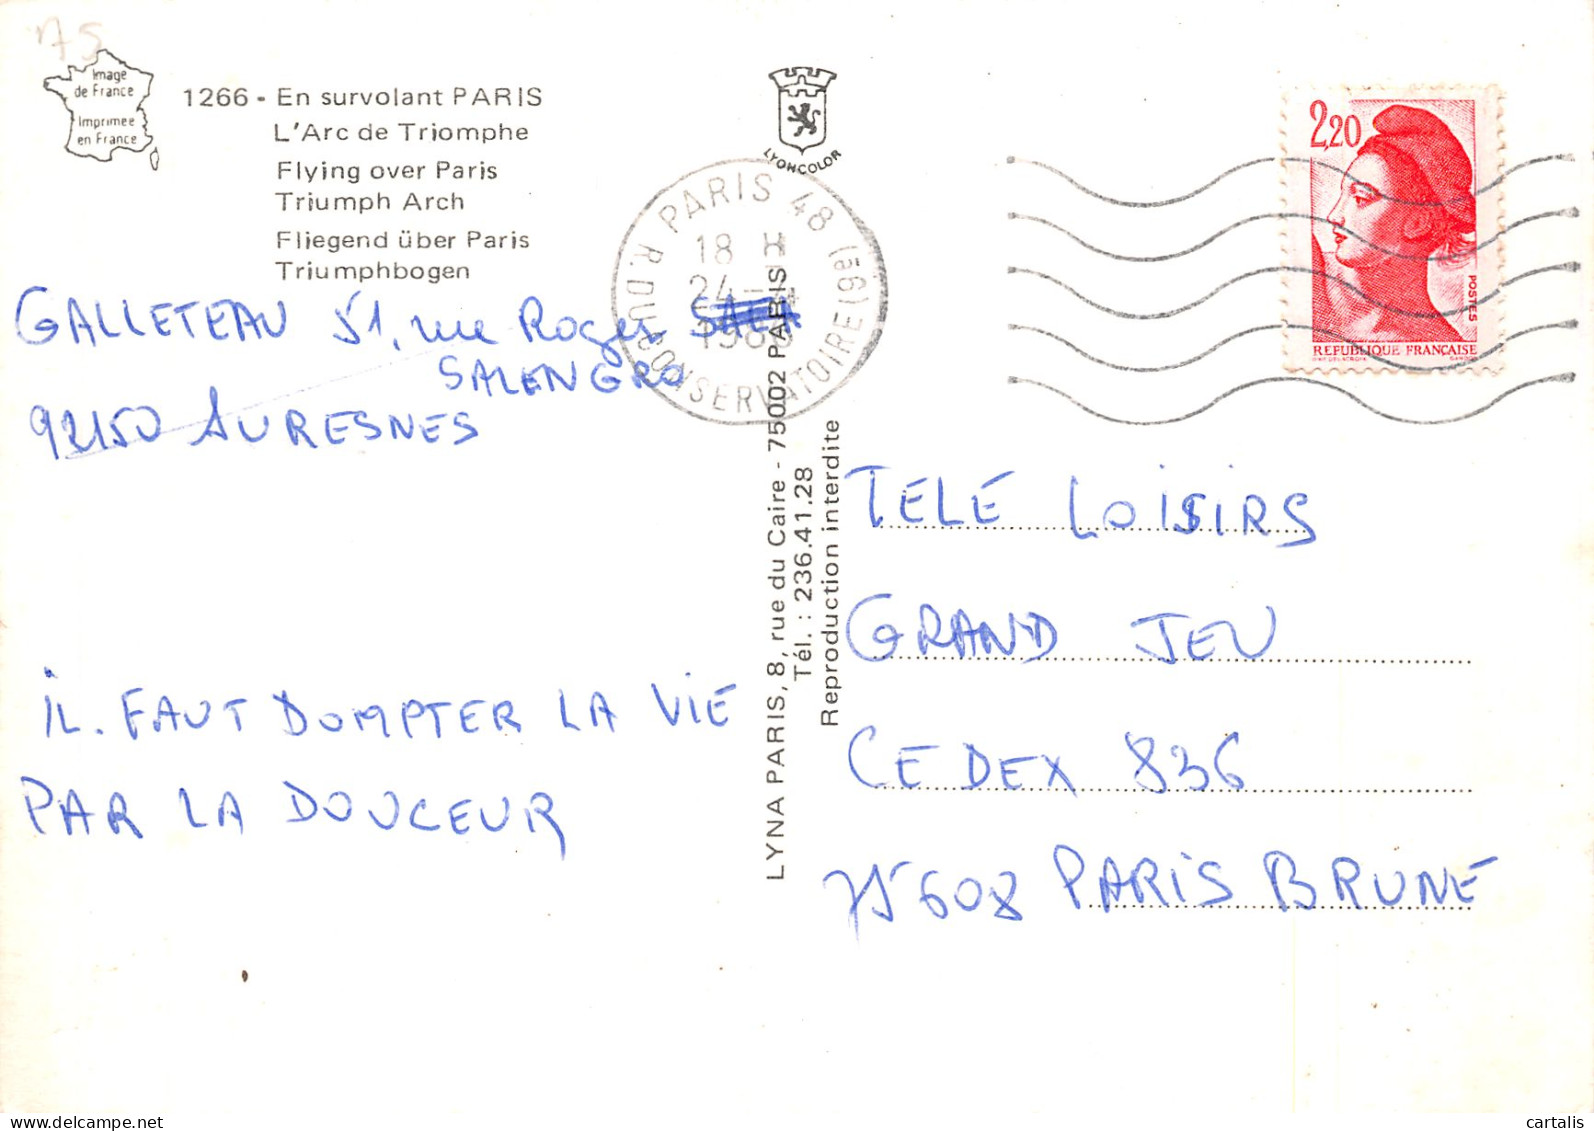 75
Image
de France
Imprimée
en France
1266 - En survolant PARIS
L'Arc de Triomphe
Flying over Paris
Triumph Arch
Fliegend über Paris
Triumphbogen
GALLETEAU 51, rue Roger
SALENGRO
92150 SURESNES
IL. FAUT DOMPTER LA VIE
PAR LA DOUCEUR
LYONCOLOR
PARIS 48 (19e)
18 H
24-
R. DU CONSERVATOIRE
LYNA PARIS, 8, rue du Caire - 75002 PARIS
Tél. : 236.41.28
Reproduction interdite
2,20
POSTES
REPUBLIQUE FRANÇAISE
TELÉ LOISIRS
GRAND JEU
CEDEX 836
75608 PARIS BRUNE
cartalis